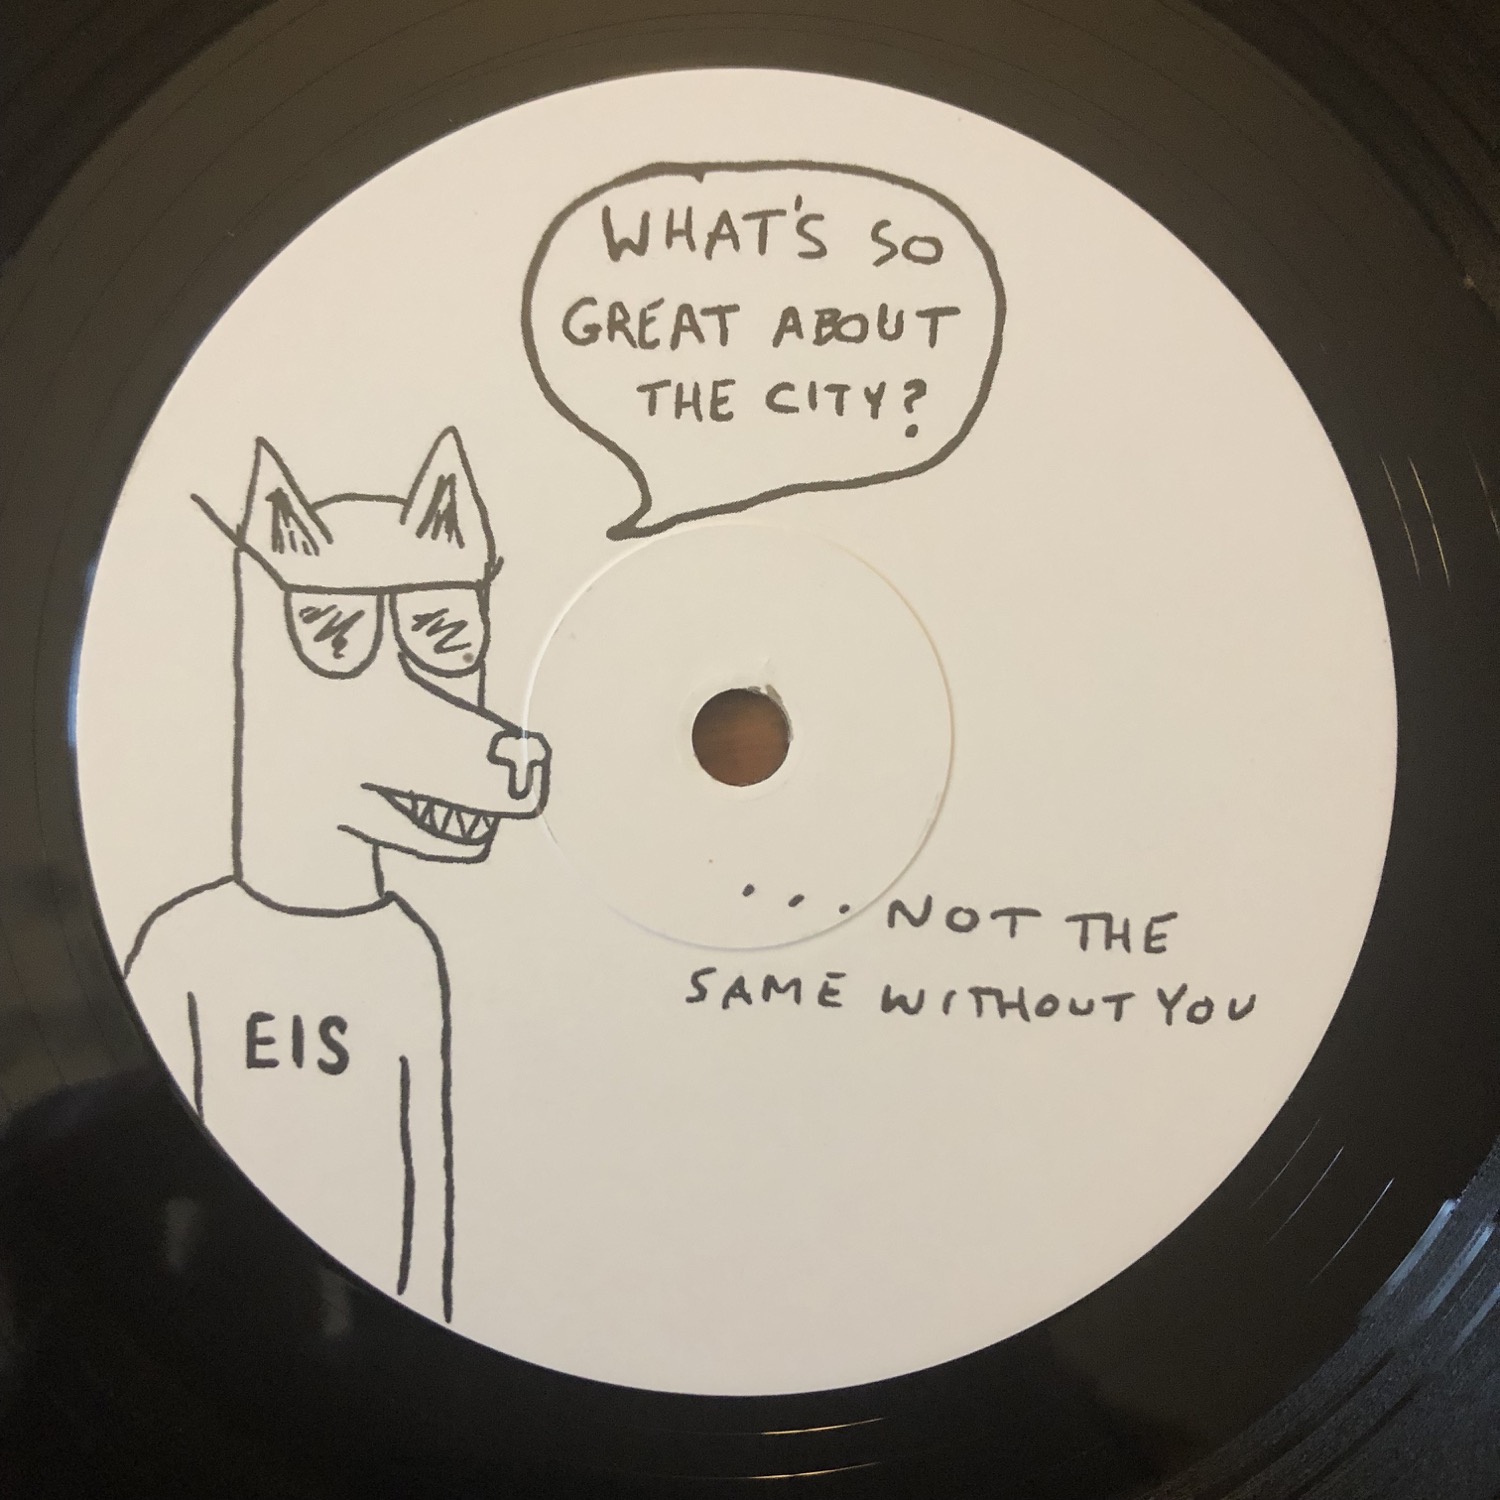 WHAT'S SO
GREAT ABOUT
THE CITY?
EIS
...NOT THE
SAME WITHOUT YOU